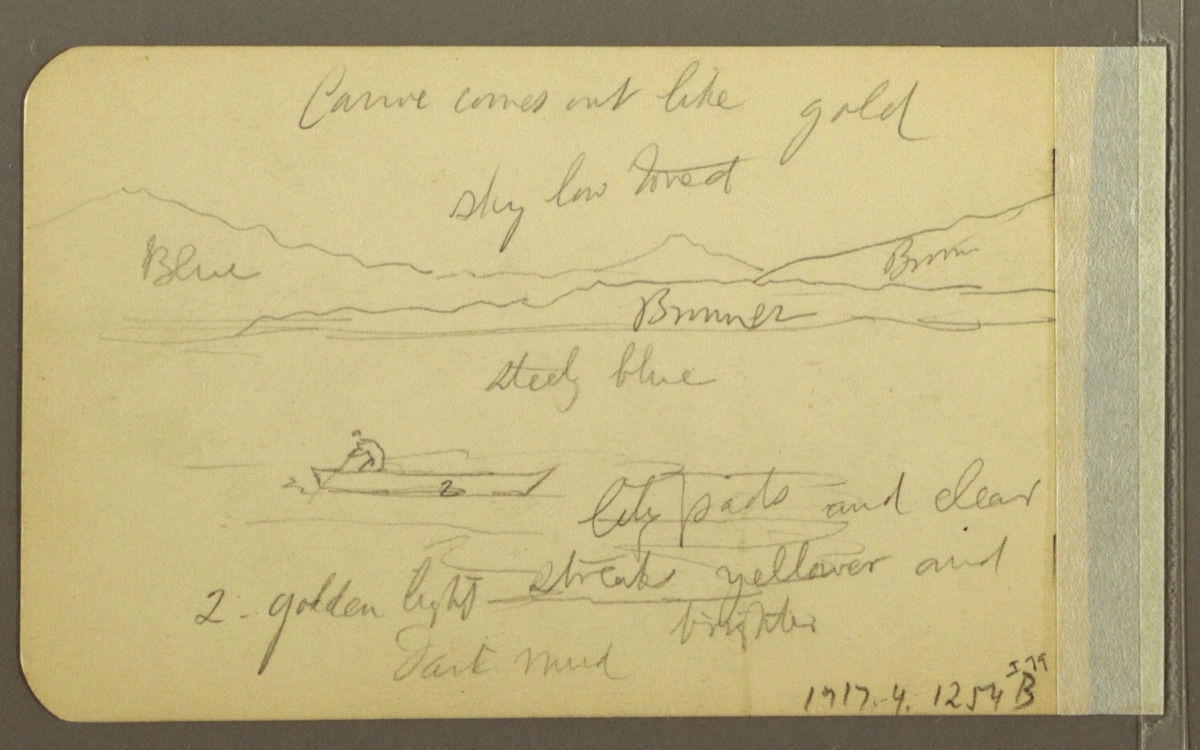 Canoe comes out like gold
sky low toned
Blue
Brown
Browner
steely blue
2
lily pads and clear
streaks yellower and
brighter
2 - golden light
Dark mud
J79
1917.4.1254 B